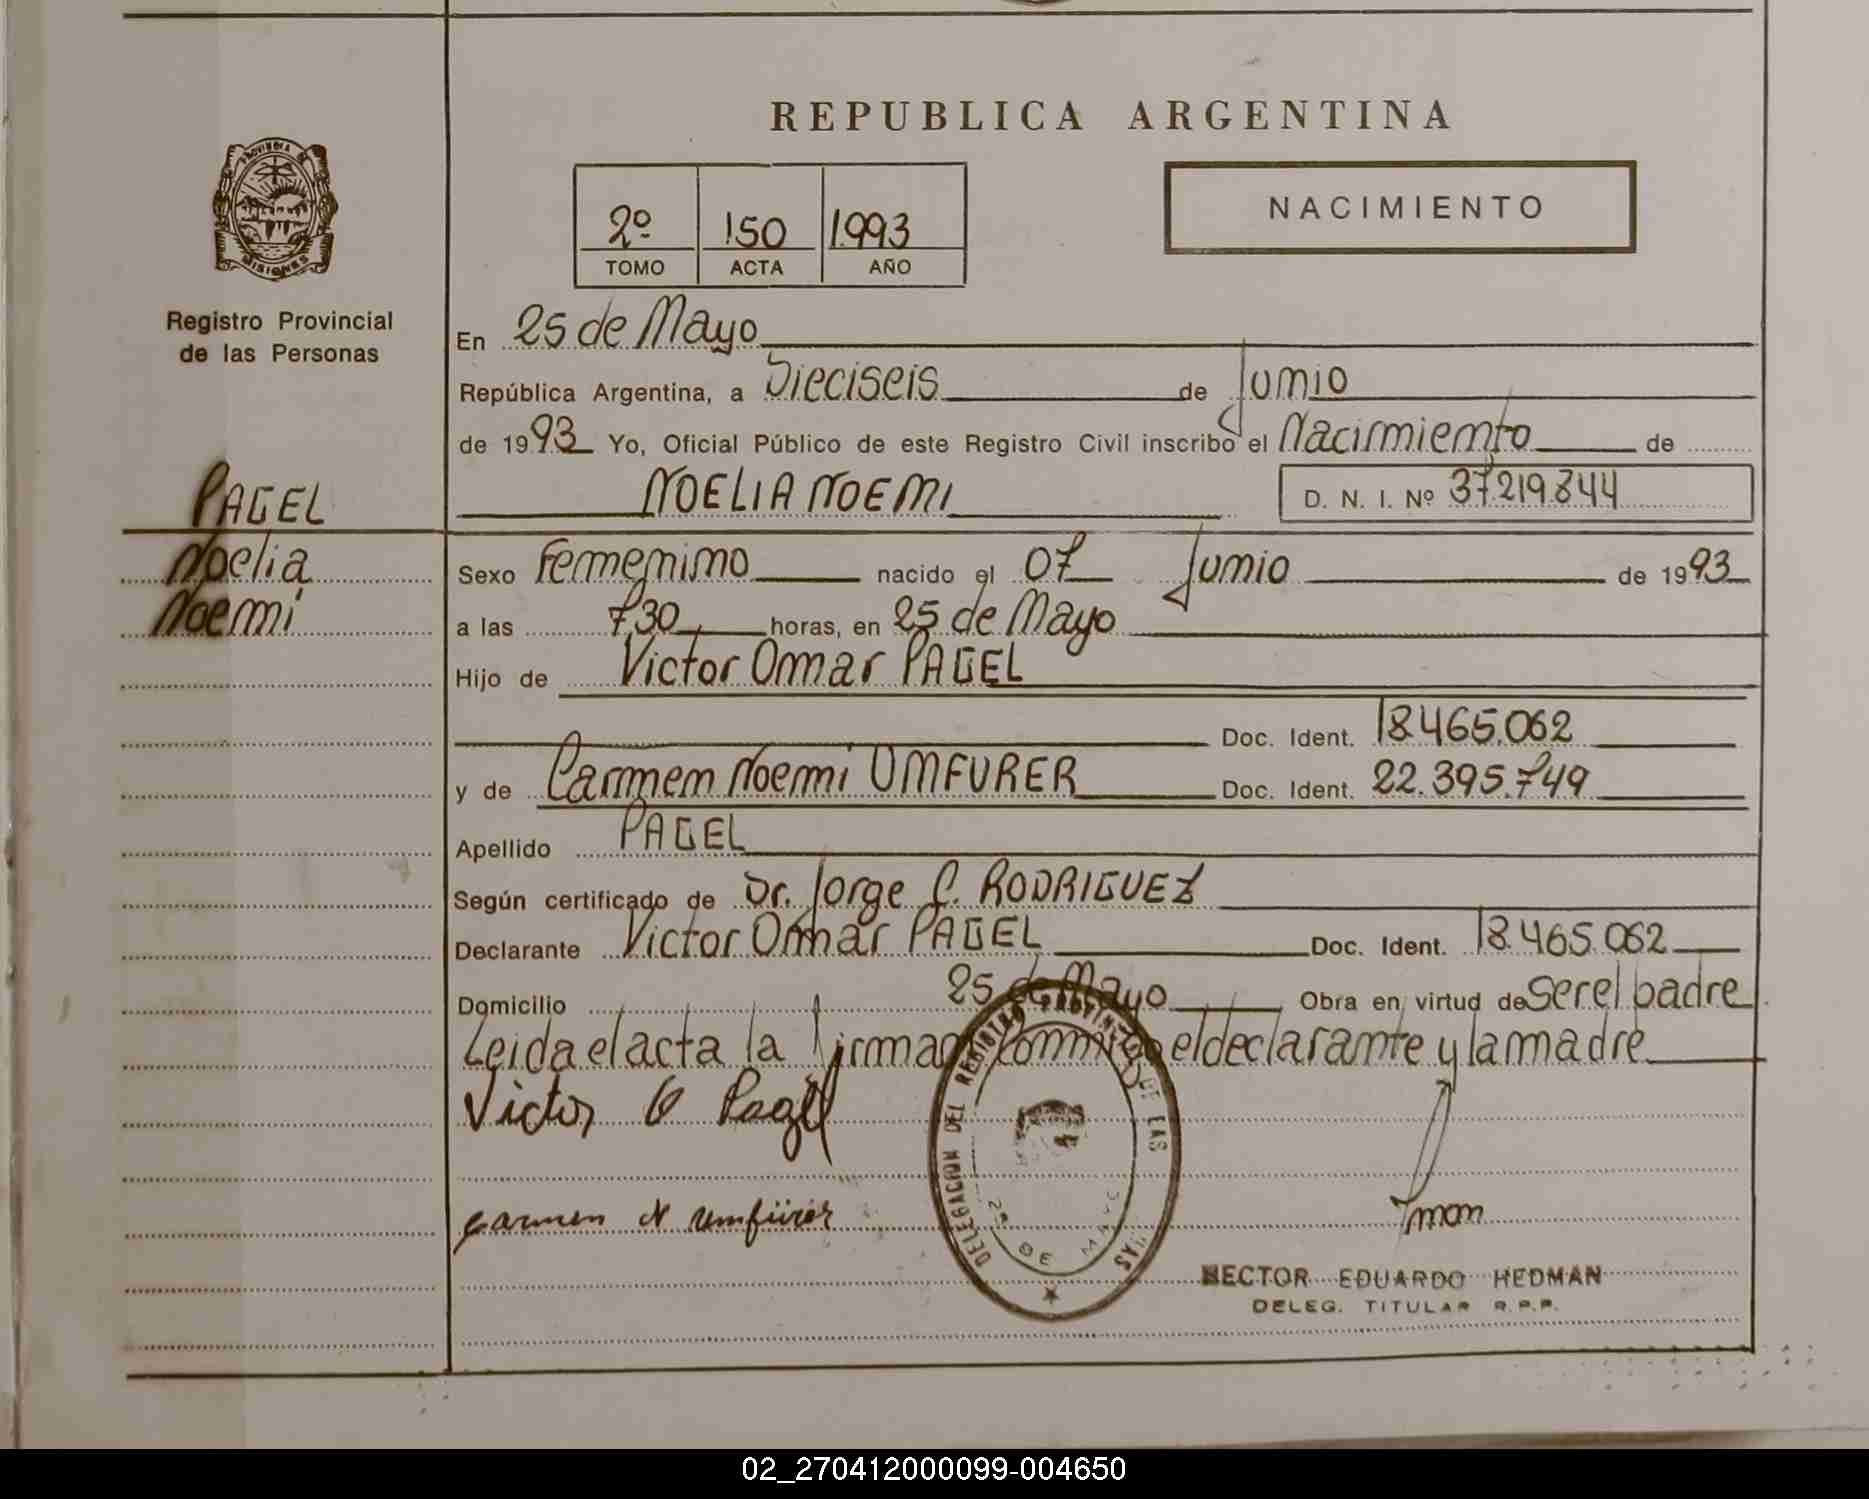 REPUBLICA ARGENTINA
PROVINCIA DE
MISIONES
Registro Provincial
de las Personas
2º 150 1993
TOMO ACTA AÑO
NACIMIENTO
En 25 de Mayo
República Argentina, a Dieciseis de Junio
de 1993 Yo, Oficial Público de este Registro Civil inscribo el Nacimiento de
PAGEL
NOELIA NOEMI D. N. I. Nº 37.219.844
Noelia
Noemi
Sexo Femenino nacido el 07 Junio de 1993
a las 7,30 horas, en 25 de Mayo
Hijo de Victor Omar PAGEL
Doc. Ident. 18.465.062
y de Carmen Noemi UMFURER Doc. Ident. 22.395.749
Apellido PAGEL
Según certificado de Dr. Jorge C. RODRIGUEZ
Declarante Victor Omar PAGEL Doc. Ident. 18.465.062
Domicilio 25 de Mayo Obra en virtud de Ser el padre
Leida el acta la firman conmigo el declarante y la madre
Victor O Pagel
Carmen N Umfürer
DELEGACION DEL REGISTRO PROVINCIAL DE LAS
25 DE MAYO
HECTOR EDUARDO HEDMAN
DELEG. TITULAR R.P.P.
02_270412000099-004650